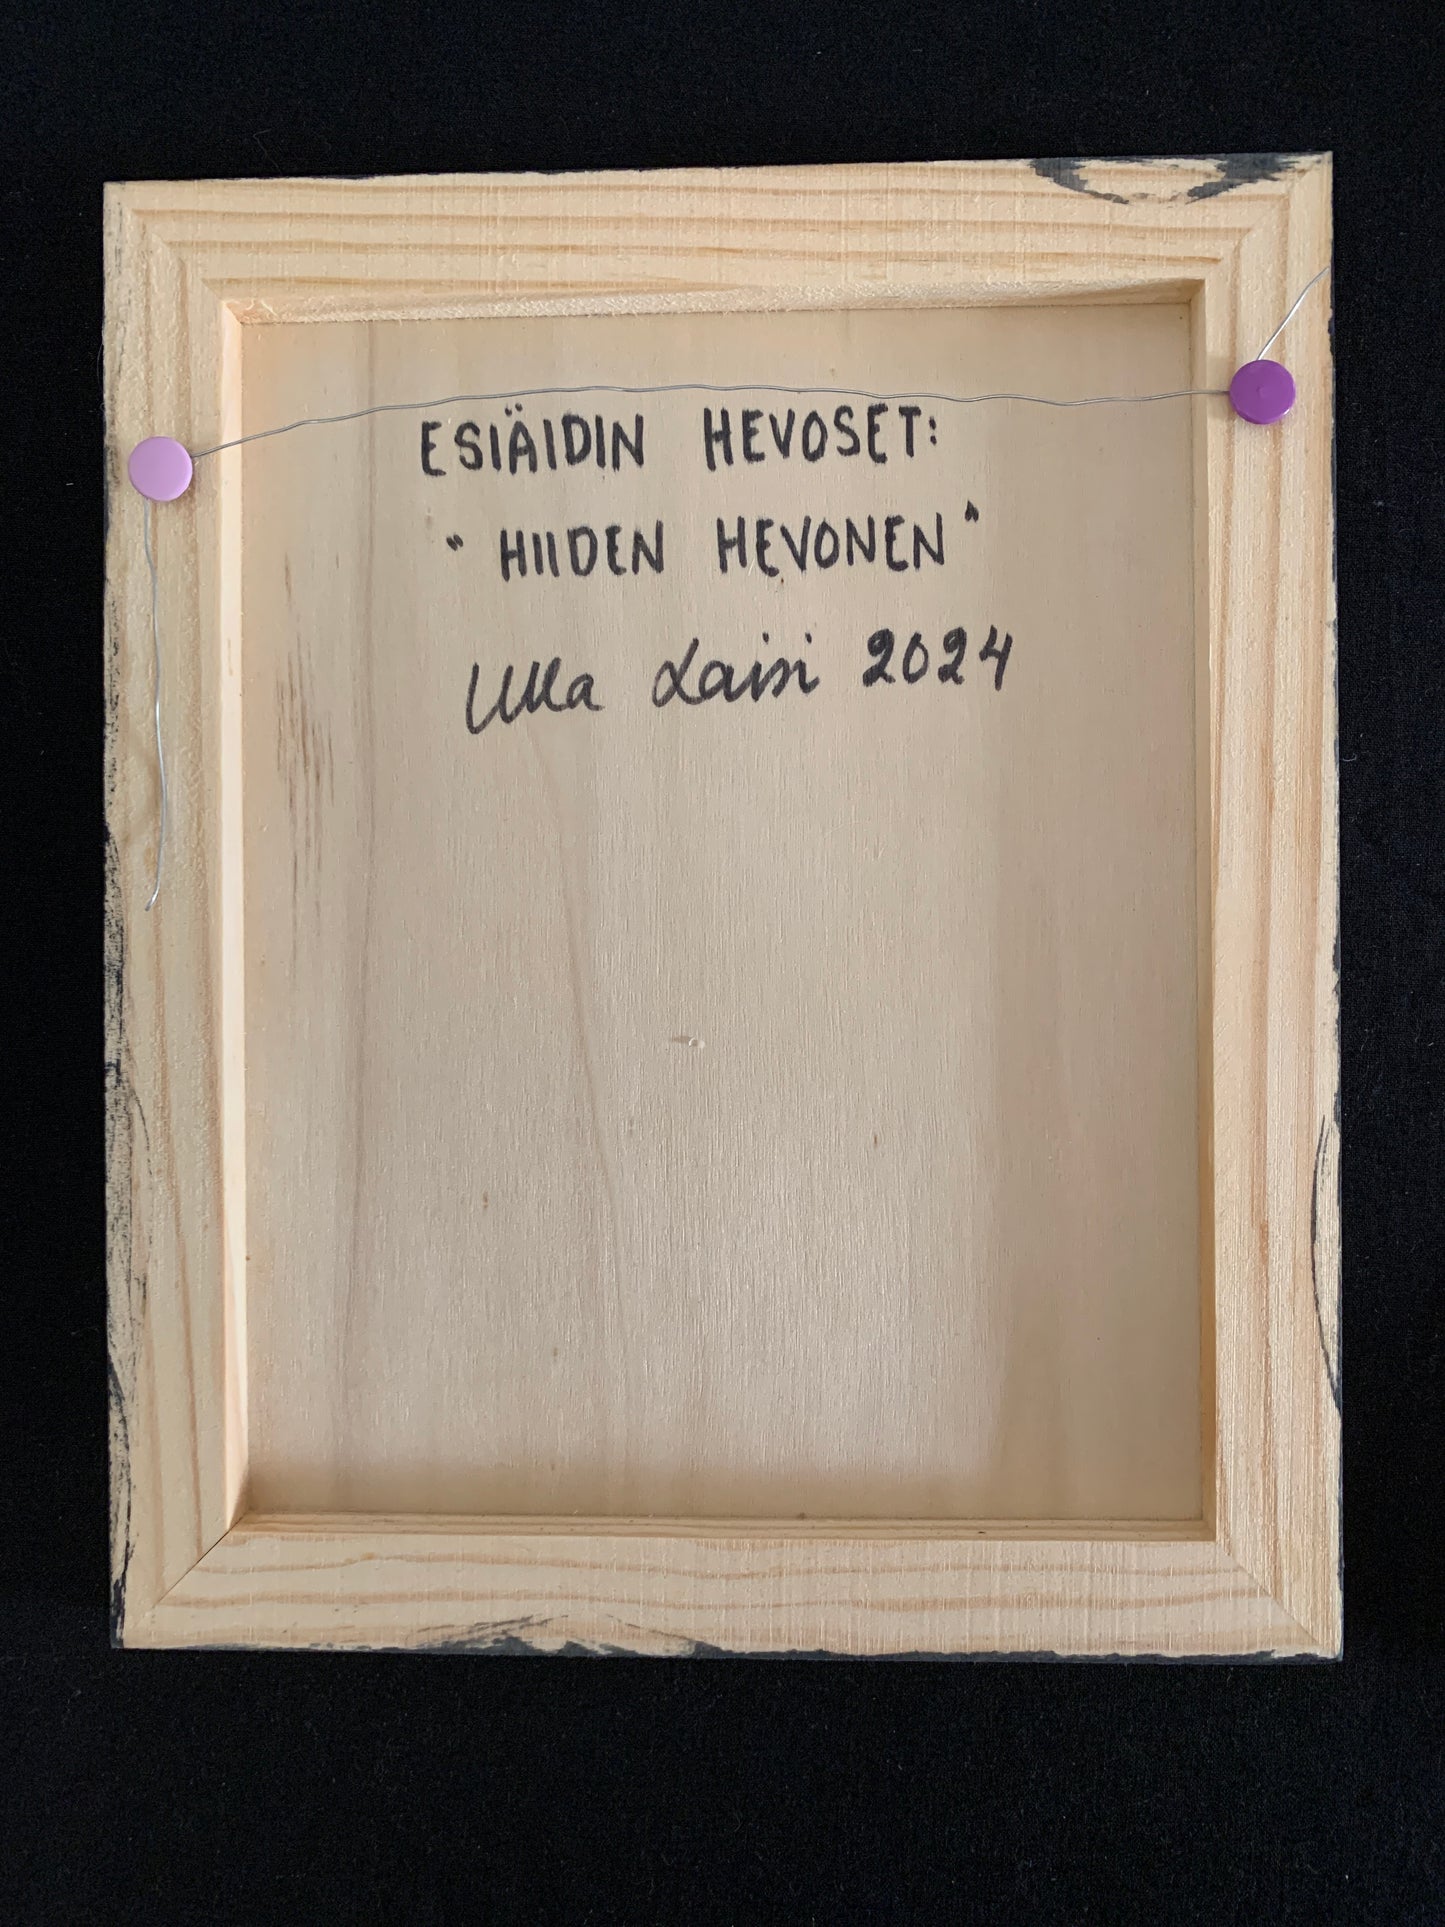 ESIÄIDIN HEVOSET:
"HIIDEN HEVONEN"
Ulla Laisi 2024